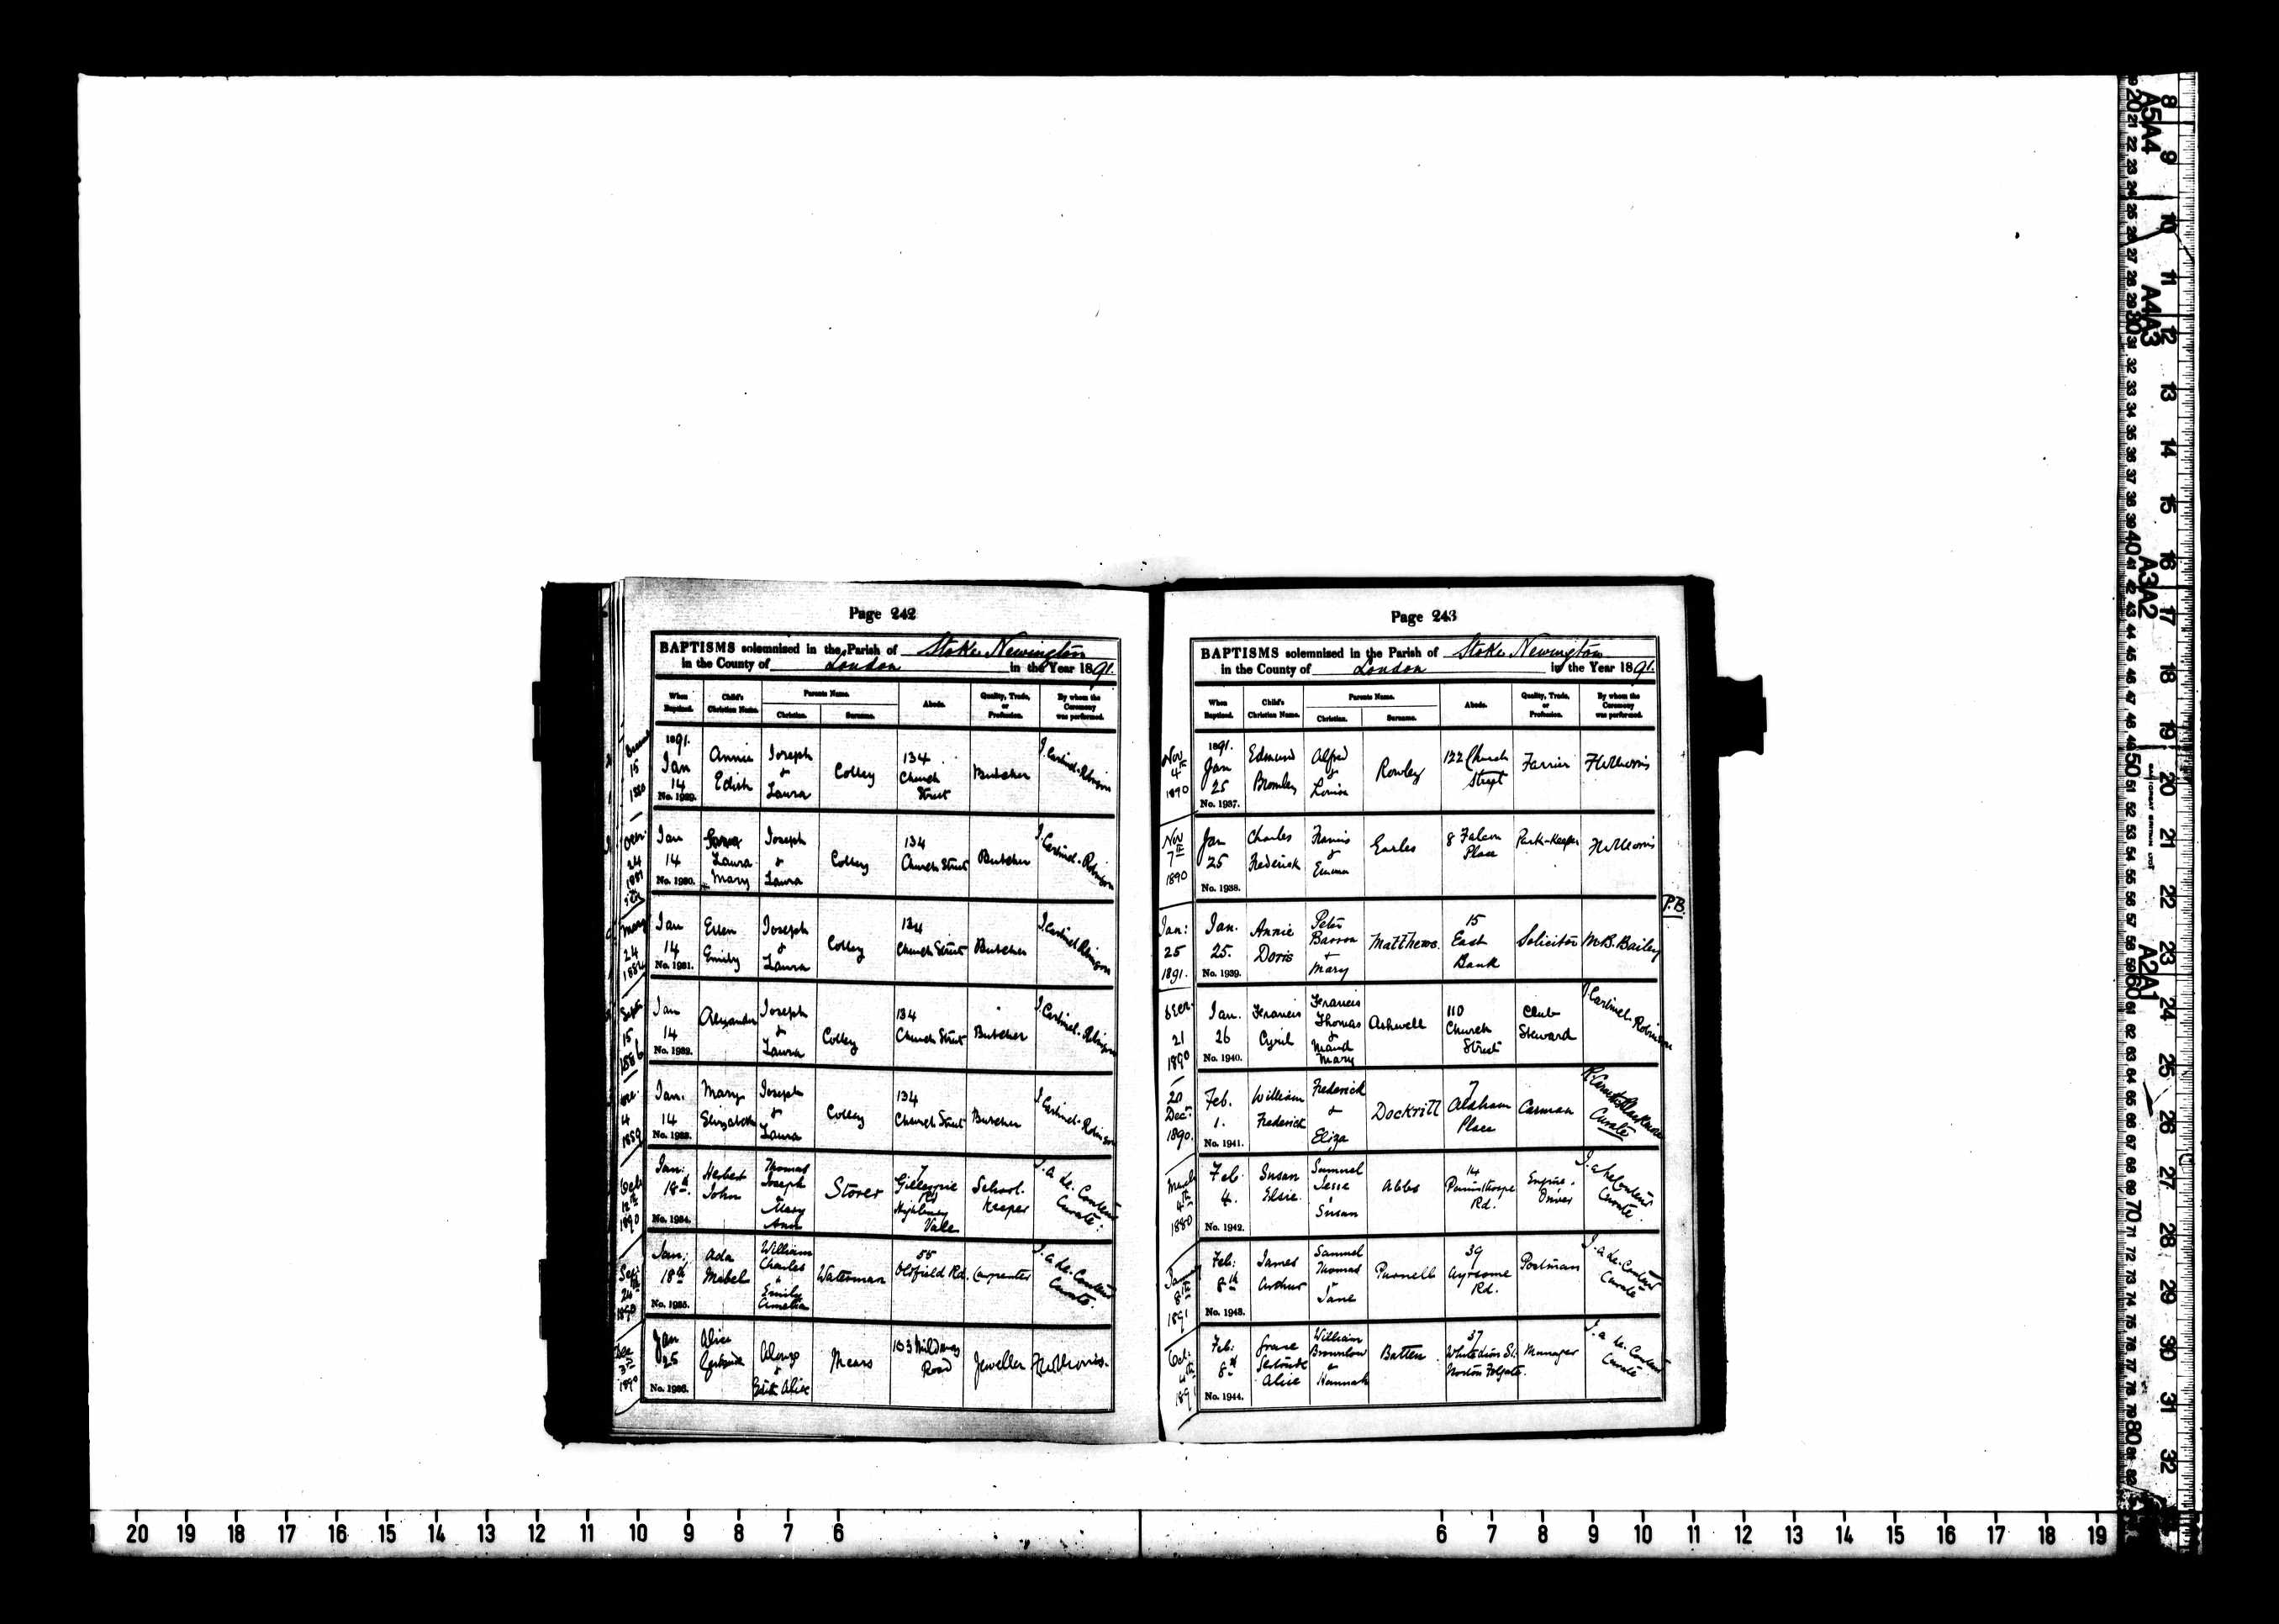 Page 242
BAPTISMS solemnized in the Parish of Stoke Newington
in the County of London in the Year 1891.
When Baptized.
Child's Christian Name.
Parents Name.
Christian.
Surname.
Abode.
Quality, Trade, or Profession.
By whom the Ceremony was performed.
15
1891. Jan 14
No. 1929.
Annie Edith
Joseph & Laura
Colley
134 Church Street
Butcher
J. Cartmel-Robinson
24
Jan 14
No. 1930.
Laura Mary
Joseph & Laura
Colley
134 Church Street
Butcher
J. Cartmel-Robinson
24
Jan 14
No. 1931.
Ellen Emily
Joseph & Laura
Colley
134 Church Street
Butcher
J. Cartmel Robinson
Sept 15 1886
Jan 14
No. 1932.
Alexander
Joseph & Laura
Colley
134 Church Street
Butcher
J. Cartmel-Robinson
4 1889
Jan. 14
No. 1933.
Mary Elizabeth
Joseph & Laura
Colley
134 Church Street
Butcher
J. Cartmel-Robinson
Oct. 12th 1890
Jan: 18th.
No. 1934.
Herbert John
Thomas Joseph & Mary Ann
Storer
7 Gillespie Rd Highbury Vale
School-Keeper
J. a Le. Couteur Curate.
Sept: 24th 1890
Jan: 18th
No. 1935.
Ada Mabel
William Charles & Emily Amelia
Waterman
55 Oldfield Rd.
Carpenter
J. a Le. Couteur Curate.
Dec 3rd 1890
Jan 25
No. 1936.
Alice Gertrude
Alonzo & Edith Alice
Mears
103 Mildmay Road
Jeweller
Page 243
BAPTISMS solemnized in the Parish of Stoke Newington
in the County of London in the Year 1891.
When Baptized.
Child's Christian Name.
Parents Name.
Christian.
Surname.
Abode.
Quality, Trade, or Profession.
By whom the Ceremony was performed.
Nov 4th 1890
1891. Jan 25
No. 1937.
Edmund Bromley
Alfred & Louisa
Rowley
122 Church Street
Farrier
Nov 7th 1890
Jan 25
No. 1938.
Charles Frederick
Francis & Emma
Earles
8 Falcon Place
Park-Keeper
P.B.
Jan: 25 1891.
Jan. 25.
No. 1939.
Annie Doris
Peter Barron & Mary
Matthews.
15 East Bank
Solicitor
M.B. Bailey
Decr. 21 1890
Jan. 26
No. 1940.
Francis Cyril
Francis Thomas & Maud Mary
Ashwell
110 Church Street
Club Steward
J. Cartmel-Robinson
20 Decr. 1890.
Feb. 1.
No. 1941.
William Frederick
Frederick & Eliza
Dockrill
7 Alsham Place
Carman
Curate
March 4th 1880
Feb. 4.
No. 1942.
Susan Elsie.
Samuel Jesse & Susan
Abbs
14 Rd.
Engine-Driver
J. a Le Couteur Curate.
8th 1891
Feb: 8th
No. 1943.
James Arthur
Samuel Thomas & Jane
Purnell
39 Ayresome Rd.
Postman
J. a Le. Couteur Curate
Oct: 4th 189
Feb: 8th
No. 1944.
Grace Gertrude Alice
William Brownlow & Hannah
Batten
37 White Lion St. Norton Folgate.
Manager
J. a Le. Couteur Curate